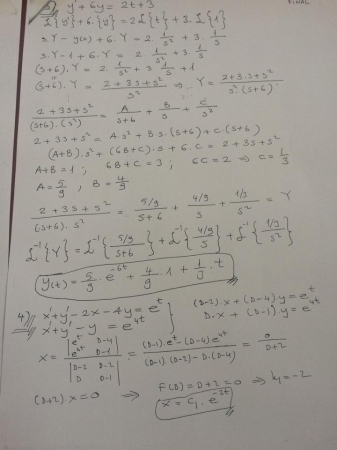 FINAL
y' + 6y = 2t+3
£{y'} + 6.{y} = 2£{t} + 3.£{1}
s.Y - y(0) + 6.Y = 2. 1/s² + 3. 1/s
s.Y - 1 + 6.Y = 2. 1/s² + 3. 1/s
(s+6).Y = 2. 1/s² + 3. 1/s + 1
(s+6).Y = (2+3s+s²)/s² ⇒ Y = (2+3.s+s²)/(s².(s+6))
(2+3s+s²)/((s+6).(s²)) = A/(s+6) + B/s + C/s²
2+3s+s² = As² + B.s.(s+6) + C.(s+6)
(A+B).s² + (6B+C).s + 6.C = 2+3s+s²
A+B=1 ; 6B+C=3 ; 6C=2 → C=1/3
A=5/9 , B=4/9
(2+3s+s²)/((s+6).s²) = (5/9)/(s+6) + (4/9)/s + (1/3)/s² = Y
£⁻¹{Y} = £⁻¹{(5/9)/(s+6)} + £⁻¹{(4/9)/s} + £⁻¹{(1/9)/s²}
y(t) = 5/9 . e^(-6t) + 4/9 . 1 + 1/9 . t
4) x'+y'-2x-4y=e^t (D-2).x+(D-4)y=e^t
x'+y'-y=e^(4t) D.x+(D-1)y=e^(4t)
x = |e^t D-4; e^(4t) D-1| / |D-2 D-2; D D-1| = ((D-1).e^t-(D-4)e^(4t))/((D-1).(D-2)-D.(D-4)) = 0/(D+2)
(D+2).x=0 → F(D)=D+2=0 ⇒ k₁=-2
x = C₁.e^(-2t)